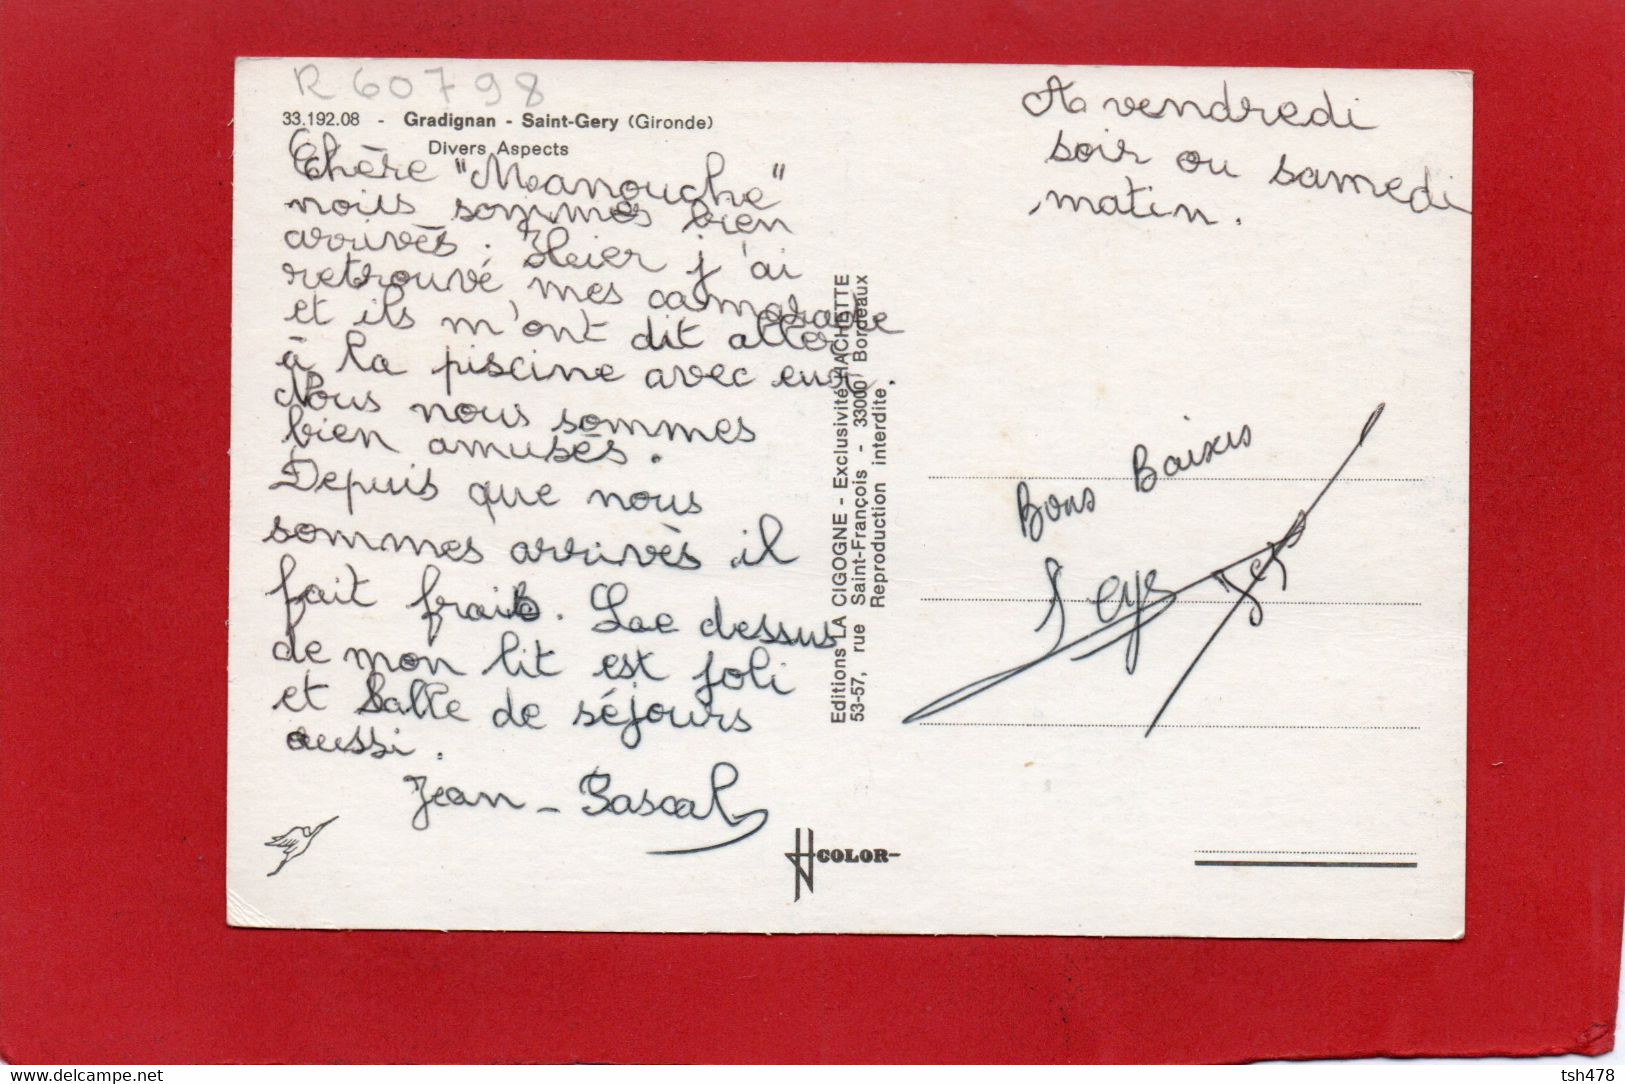 R 60798
33.192.08 - Gradignan - Saint-Gery (Gironde)
Divers Aspects
Chère "Manouche"
nous sommes bien
arrivès. Heier j'ai
retrouvé mes camarade
et ils m'ont dit aller
à la piscine avec eux.
Nous nous sommes
bien amusés.
Depuis que nous
sommes arrivès il
fait frais. Lae dessus
de mon lit est joli
et Salle de séjours
aussi.
Jean-Pascal
Editions LA CIGOGNE - Exclusivité HACHETTE
53-57, rue Saint-François - 33000 Bordeaux
Reproduction interdite
COLOR
A vendredi
soir ou samedi
matin.
Bons Baisers
delcampe.net
tsh478